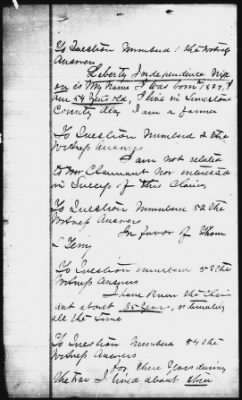 To Question Numbered 1 the Witness
Answers
Liberty Independence Nix
on is My Name I was born 1824, I
am 54 Years old, I live in Limestone
County Ala, I am a farmer
To Question Numbered 2 the
Witness Answers
I am not related
to the Claimant nor interested
in Success of this Claim
To Question Numbered 52 the
Witness Answers
In favor of Them
To Question numbered 53 the
Witness Answers
I have Known the Claim
ant about 35 Years,
all the time
To Question Numbered 54 the
Witness Answers
For three Years during
the War I lived about